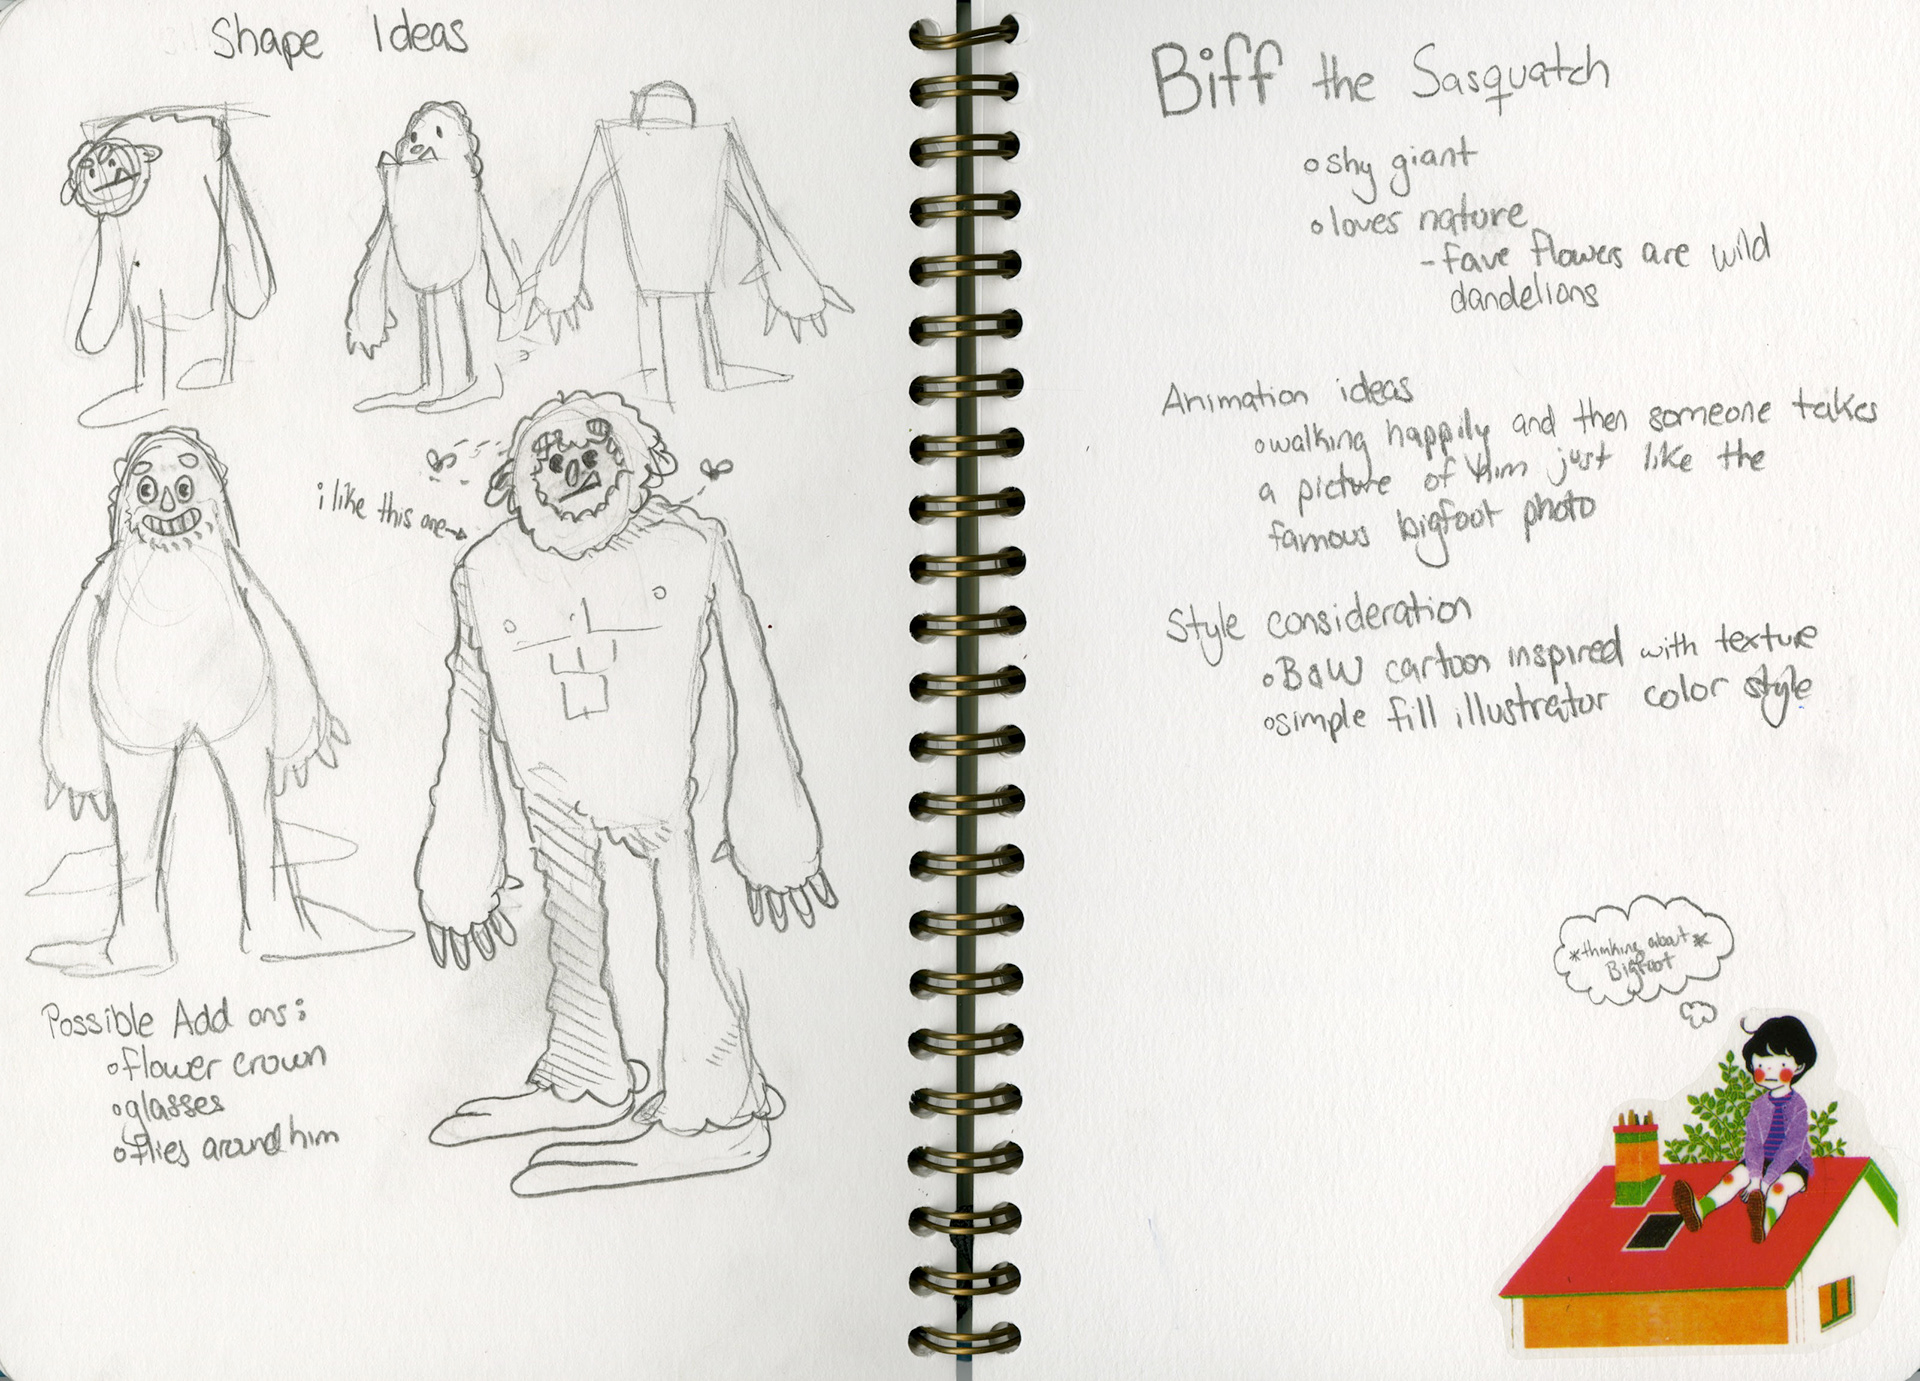 Shape Ideas
i like this one
Possible Add ons:
flower crown
glasses
flies around him
Biff the Sasquatch
shy giant
loves nature
- fave flowers are wild
dandelions
Animation ideas
walking happily and then someone takes
a picture of him just like the
famous bigfoot photo
Style consideration
B&W cartoon inspired with texture
simple fill illustrator color style
*thinking about*
Bigfoot